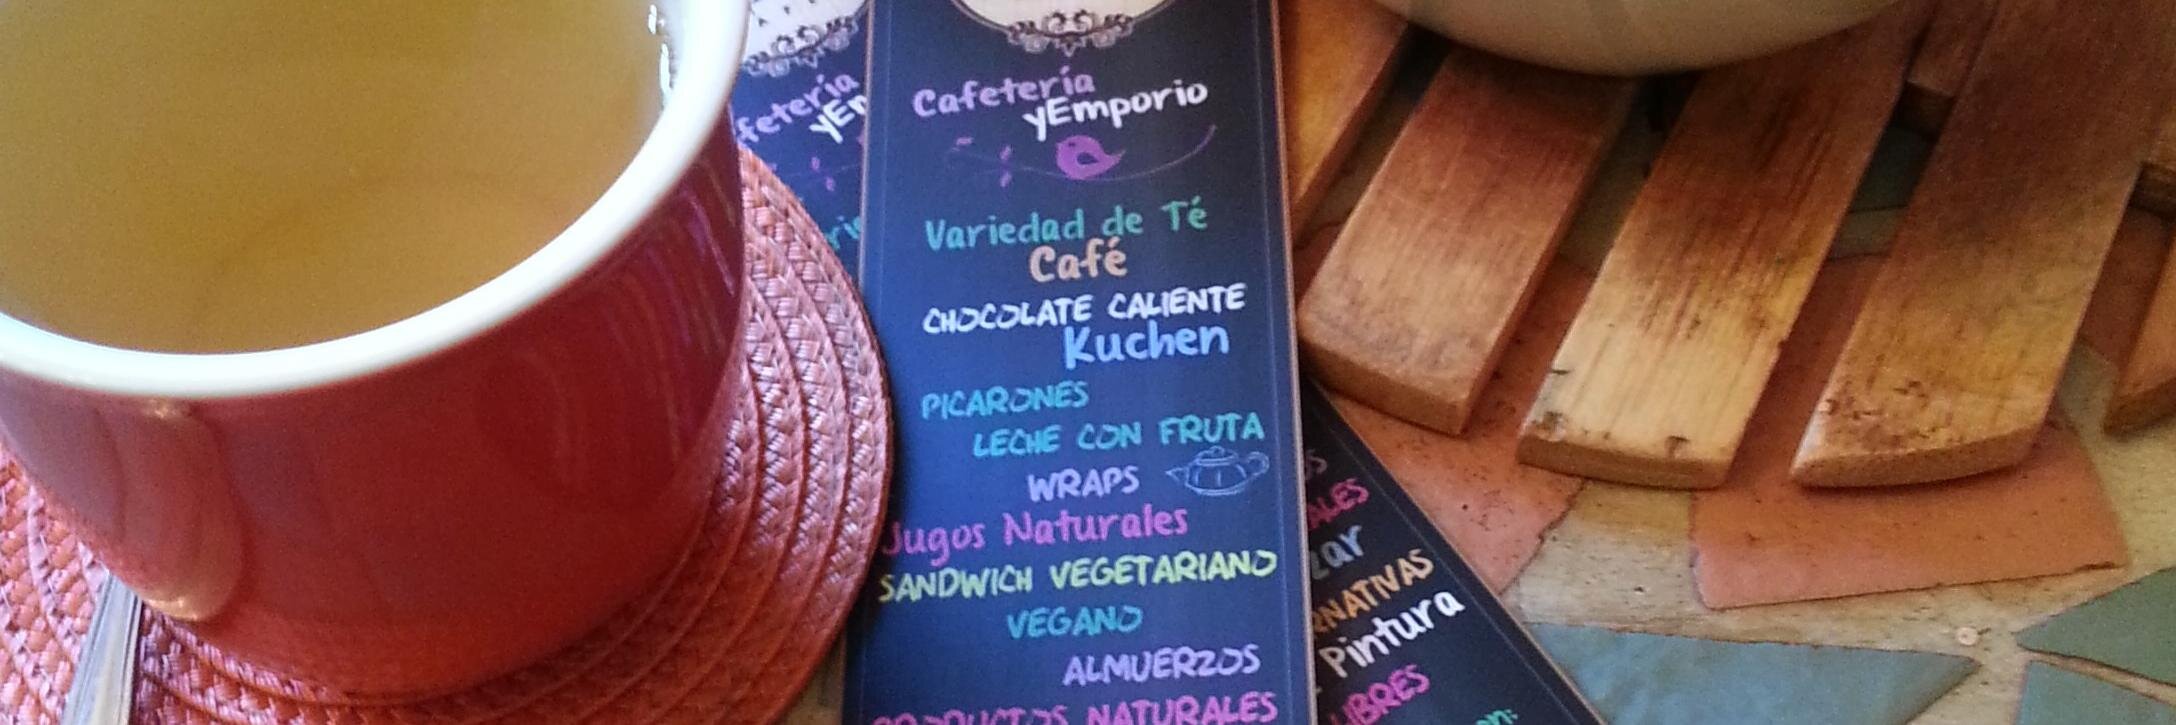 Cafetería
yEmporio
Variedad de Té
Café
CHOCOLATE CALIENTE
Kuchen
PICARONES
LECHE CON FRUTA
WRAPS
Jugos Naturales
SANDWICH VEGETARIANO
VEGANO
ALMUERZOS
PRODUCTOS NATURALES
Pintura